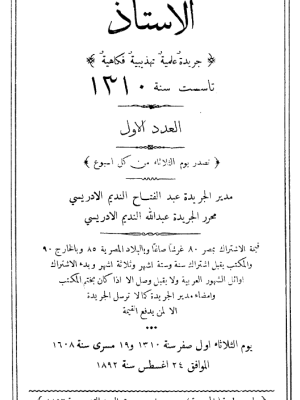 الاستاذ
﴿ جريدة علمية تهذيبية فكاهية ﴾
تأسست سنة ١٣١٠
العدد الاول
﴿ تصدر يوم الثلاثاء من كل اسبوع ﴾
مدير الجريدة عبد الفتاح النديم الادريسي
محرر الجريدة عبدالله النديم الادريسي
قيمة الاشتراك بمصر ٨٠ غرشا صاغا وبالبلاد المصرية ٨٥ وبالخارج ٩٠
والمكتب يقبل اشتراك سنة وستة اشهر وثلاثة اشهر وبدء الاشتراك
اوائل الشهور العربية ولا يقبل وصل الا اذا كان بختم المكتب
وامضاء مدير الجريدة كما لا ترسل الجريدة
الا لمن يدفع القيمة
يوم الثلاثاء اول صفر سنة ١٣١٠ و١٩ مسرى سنة ١٦٠٨
الموافق ٢٤ اغسطس سنة ١٨٩٢